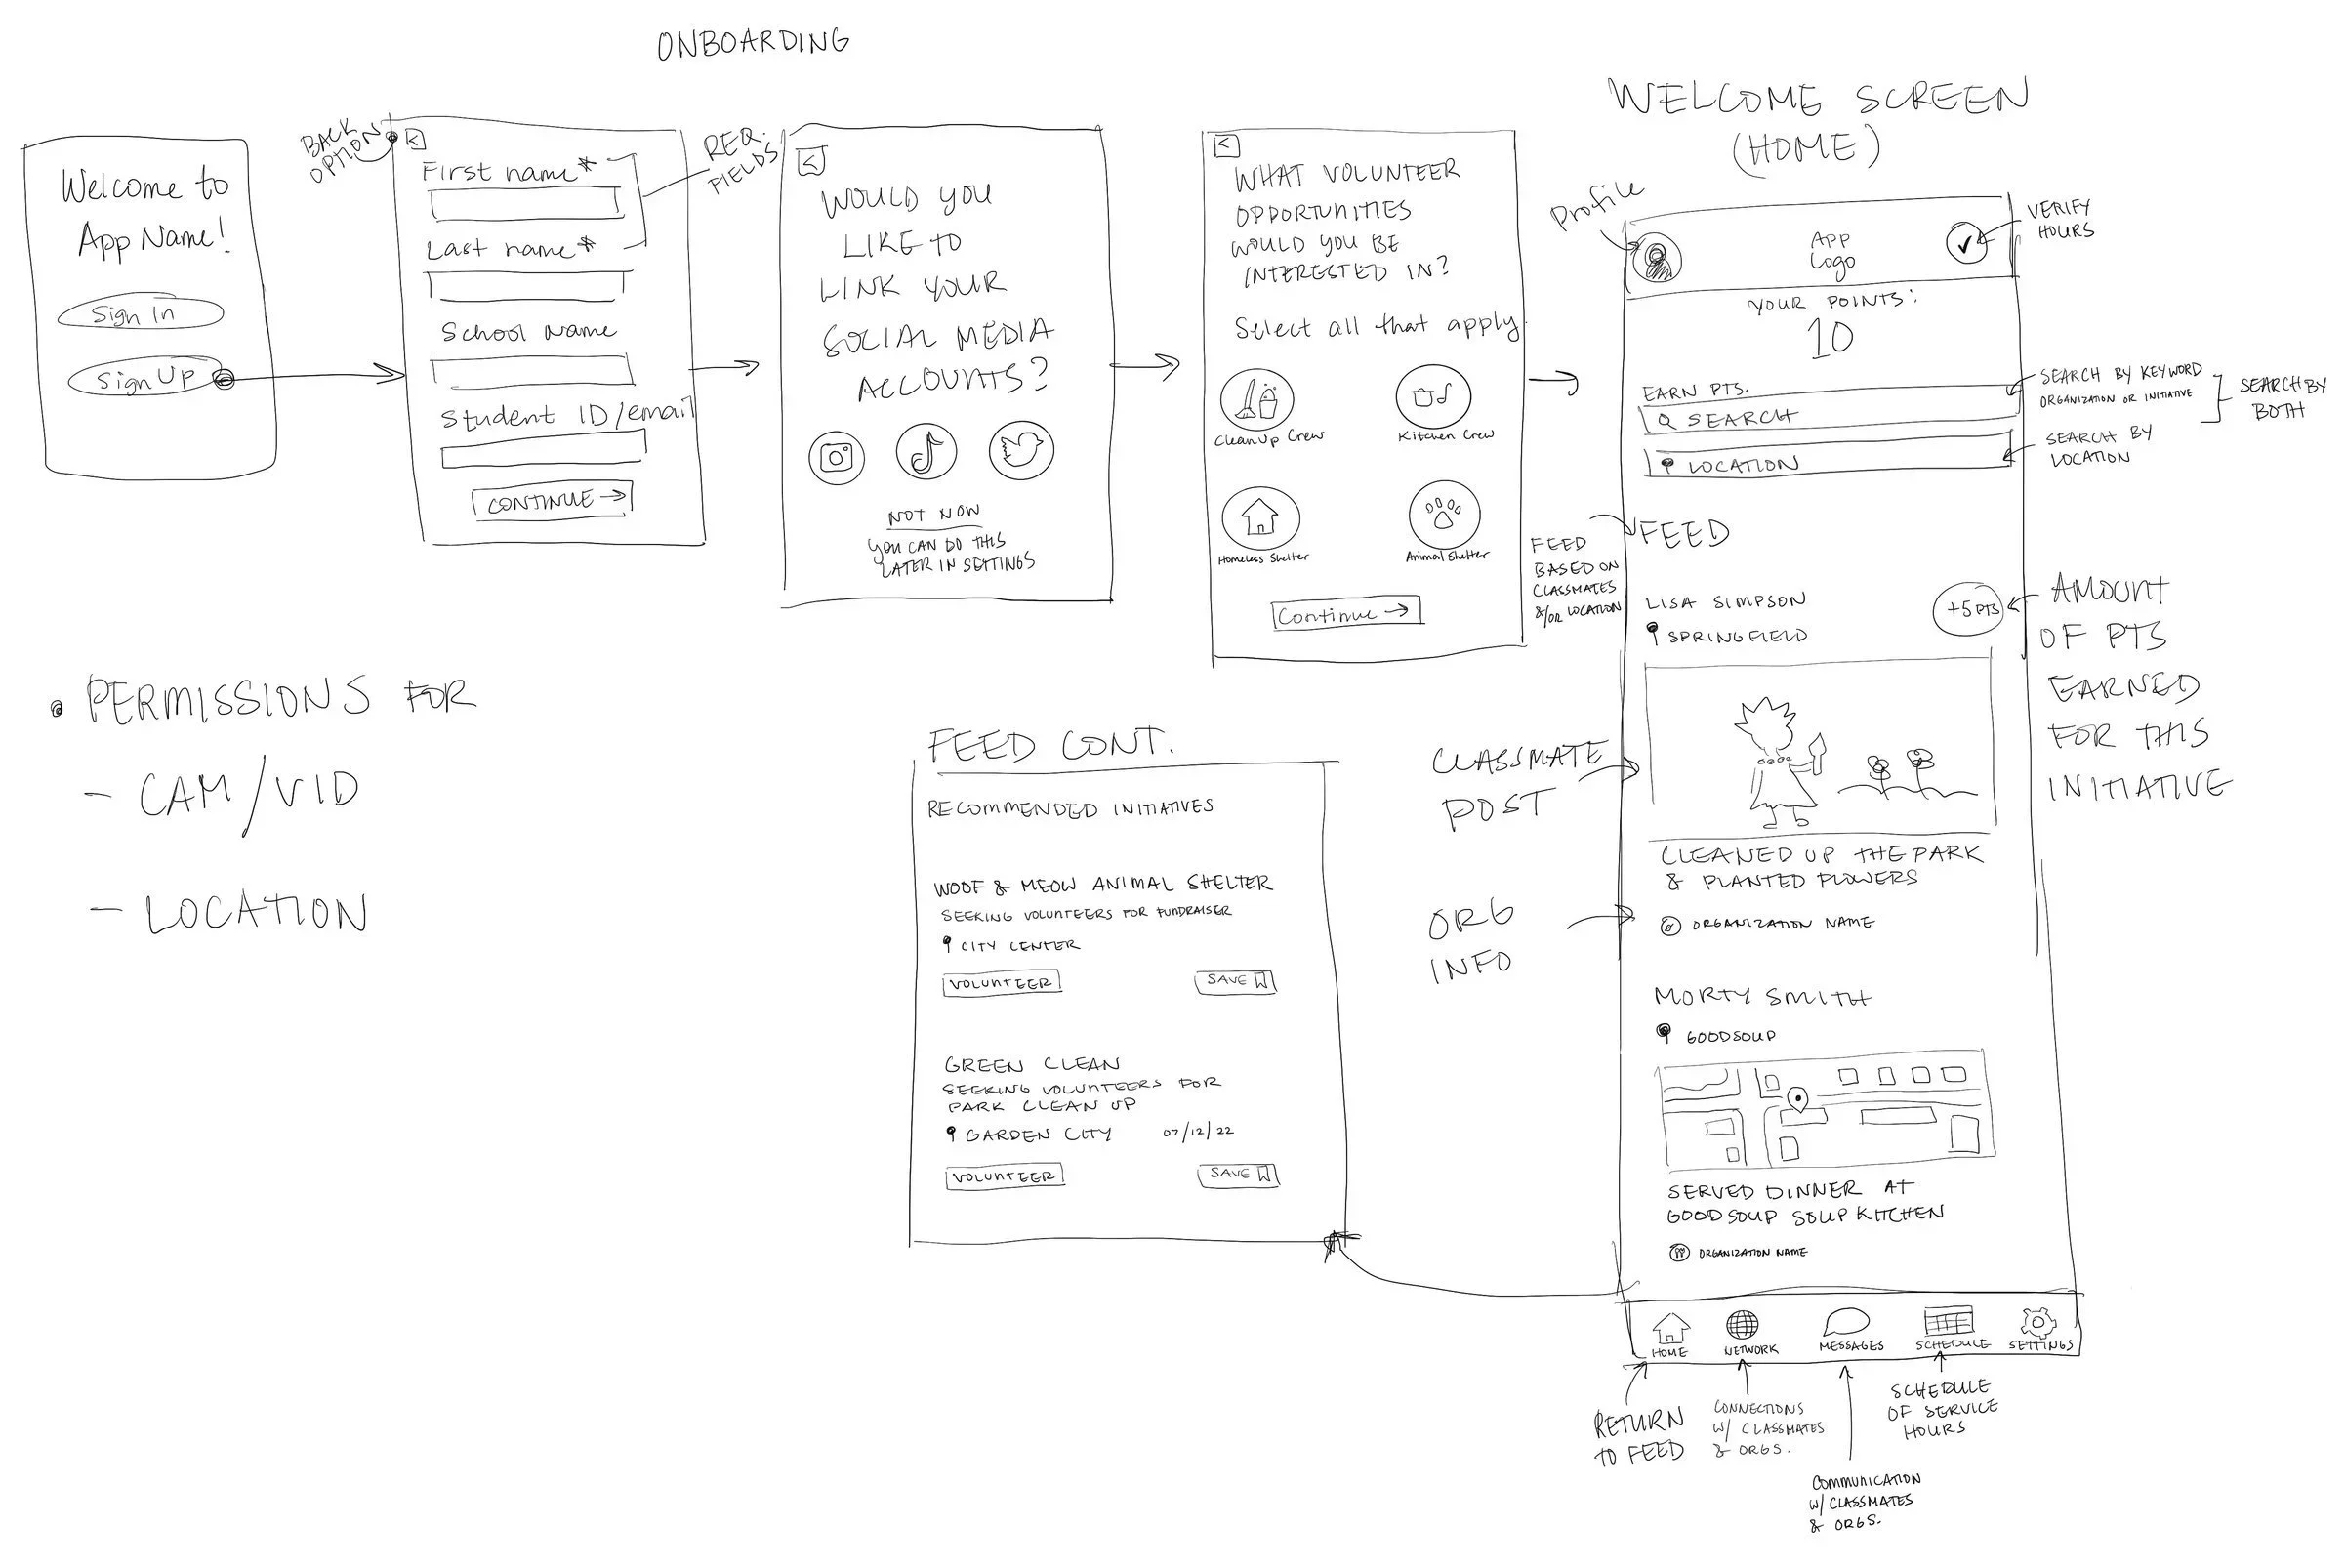 ONBOARDING
Welcome to
App Name!
Sign In
Sign Up
BACK
OPTION
<
First name*
Last name*
School Name
Student ID/email
CONTINUE →
REQ.
FIELDS
<
WOULD YOU
LIKE TO
LINK YOUR
SOCIAL MEDIA
ACCOUNTS?
NOT NOW
YOU CAN DO THIS
LATER IN SETTINGS
<
WHAT VOLUNTEER
OPPORTUNITIES
WOULD YOU BE
INTERESTED IN?
Select all that apply
CleanUp Crew
Kitchen Crew
Homeless Shelter
Animal Shelter
Continue →
WELCOME SCREEN
(HOME)
Profile
APP
Logo
VERIFY
HOURS
YOUR POINTS:
10
EARN PTS.
SEARCH
LOCATION
SEARCH BY KEYWORD
ORGANIZATION OR INITIATIVE
SEARCH BY
LOCATION
SEARCH BY
BOTH
FEED
BASED ON
CLASSMATES
&/OR LOCATION
FEED
LISA SIMPSON
SPRINGFIELD
+5 PTS
AMOUNT
OF PTS
EARNED
FOR THIS
INITIATIVE
CLASSMATE
POST
CLEANED UP THE PARK
& PLANTED FLOWERS
ORGANIZATION NAME
ORG
INFO
MORTY SMITH
GOODSOUP
SERVED DINNER AT
GOODSOUP SOUP KITCHEN
ORGANIZATION NAME
HOME
NETWORK
MESSAGES
SCHEDULE
SETTINGS
RETURN
TO FEED
CONNECTIONS
W/ CLASSMATES
& ORGS.
COMMUNICATION
W/ CLASSMATES
& ORGS.
SCHEDULE
OF SERVICE
HOURS
• PERMISSIONS FOR
- CAM/VID
- LOCATION
FEED CONT.
RECOMMENDED INITIATIVES
WOOF & MEOW ANIMAL SHELTER
SEEKING VOLUNTEERS FOR FUNDRAISER
CITY CENTER
VOLUNTEER
SAVE
GREEN CLEAN
SEEKING VOLUNTEERS FOR
PARK CLEAN UP
GARDEN CITY 07/12/22
VOLUNTEER
SAVE